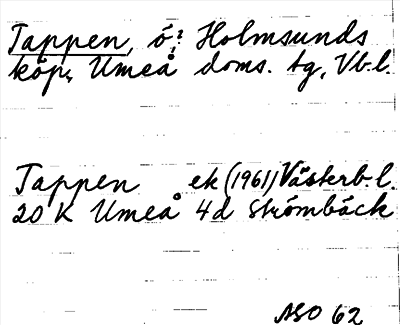 Tappen, ö? Holmsunds
köp, Umeå doms. tg, Vb.l.
Tappen ek (1961) Västerb.l.
20 K Umeå 4d Strömbäck
ASO 62